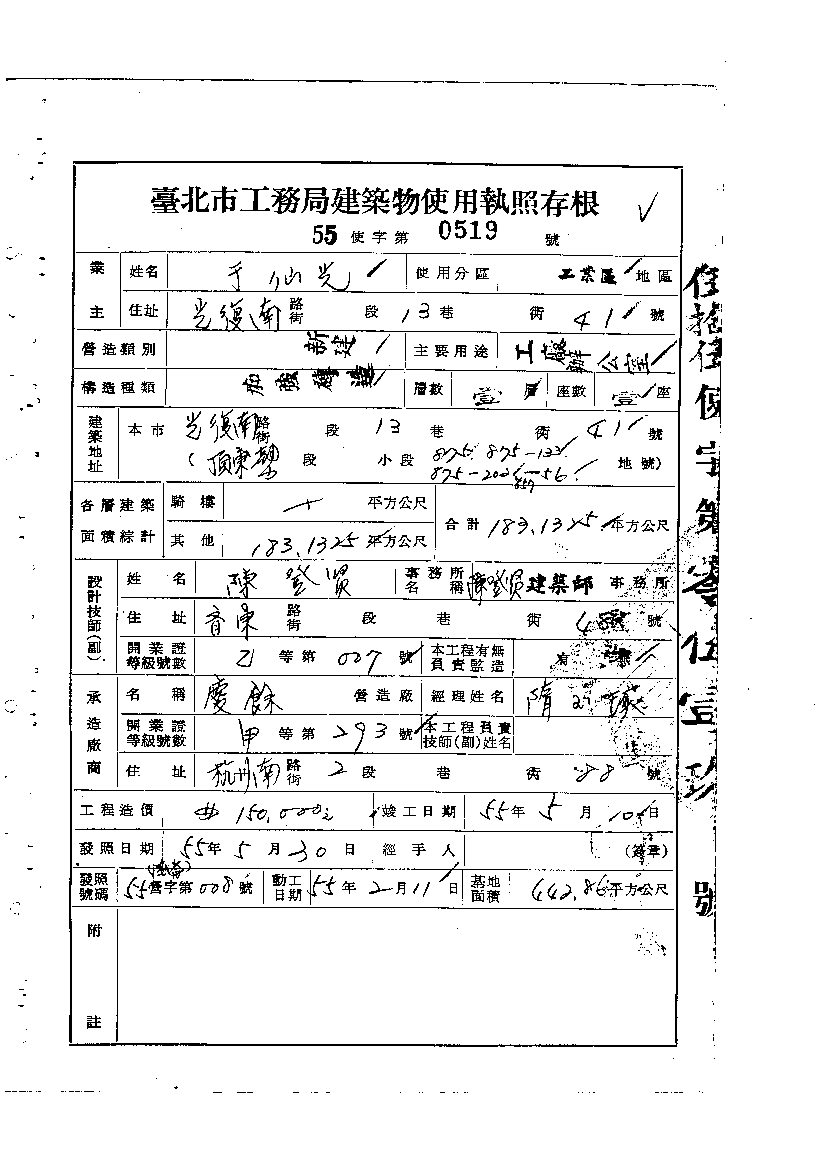 臺北市工務局建築物使用執照存根
55 使字第 0519 號
業主 姓名 于仙光 使用分區 工業區 地區
住址 光復南 路街 段 13 巷 街 41 號
營造類別 新建 主要用途 工廠辦公室
構造種類 加強磚造 層數 壹層 座數 壹座
建築地址 本市 光復南 路街 段 13 巷 街 41 號
(頂東勢 段 小段 875 875-122 地號)
各層建築面積綜計 騎樓 平方公尺 合計 183.1325 平方公尺
其他 183.1325 平方公尺
設計技師(副) 姓名 陳登賢 事務所名稱 陳登賢建築師 事務所
住址 路街 段 巷 街 號
開業證等級號數 乙 等第 007 號 本工程有無負責監造 有
承造廠商 名稱 慶餘 營造廠 經理姓名 隋
開業證等級號數 甲 等第 293 號 本工程負責技師(副)姓名
住址 杭州南 路街 2 段 巷 街 88 號
工程造價 150,000 竣工日期 55年 5 月 10 日
發照日期 55年 5 月 30 日 經手人 (簽章)
發照號碼 55 營字第 008 號 動工日期 55年 2 月 11 日 基地面積 442.86 平方公尺
附註
伍拾伍使字第零伍壹玖號